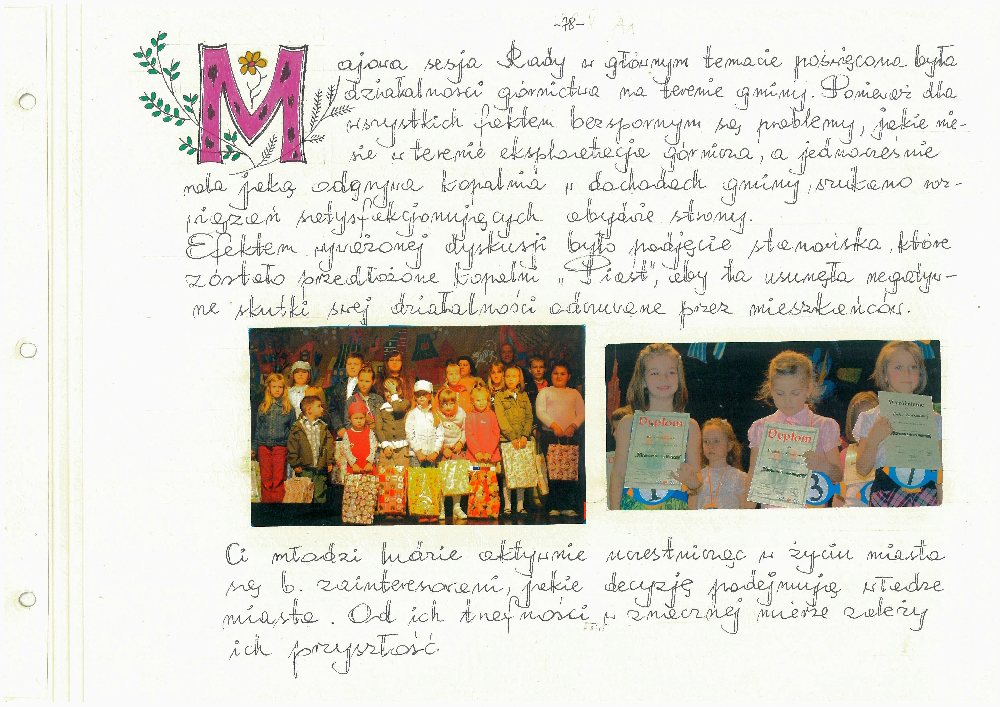 -78-
Majowa sesja Rady w głównym temacie poświęcona była
działalności górnictwa na terenie gminy. Ponieważ dla
wszystkich faktem bezspornym są problemy, jakie nie-
sie w terenie eksploatacja górnicza, a jednocześnie
rola jaką odgrywa kopalnia w dochodach gminy, szukano roz-
wiązań satysfakcjonujących obydwie strony.
Efektem wyważonej dyskusji było podjęcie stanowiska, które
zostało przedłożone kopalni "Piast", aby ta usunęła negatyw-
ne skutki swej działalności odczuwane przez mieszkańców.
Dyplom
Dyplom
1
3
2
Ci młodzi ludzie aktywnie uczestnicząc w życiu miasta
są b. zainteresowani, jakie decyzję podejmują władze
miasta. Od ich trafności w znacznej mierze zależy
ich przyszłość.